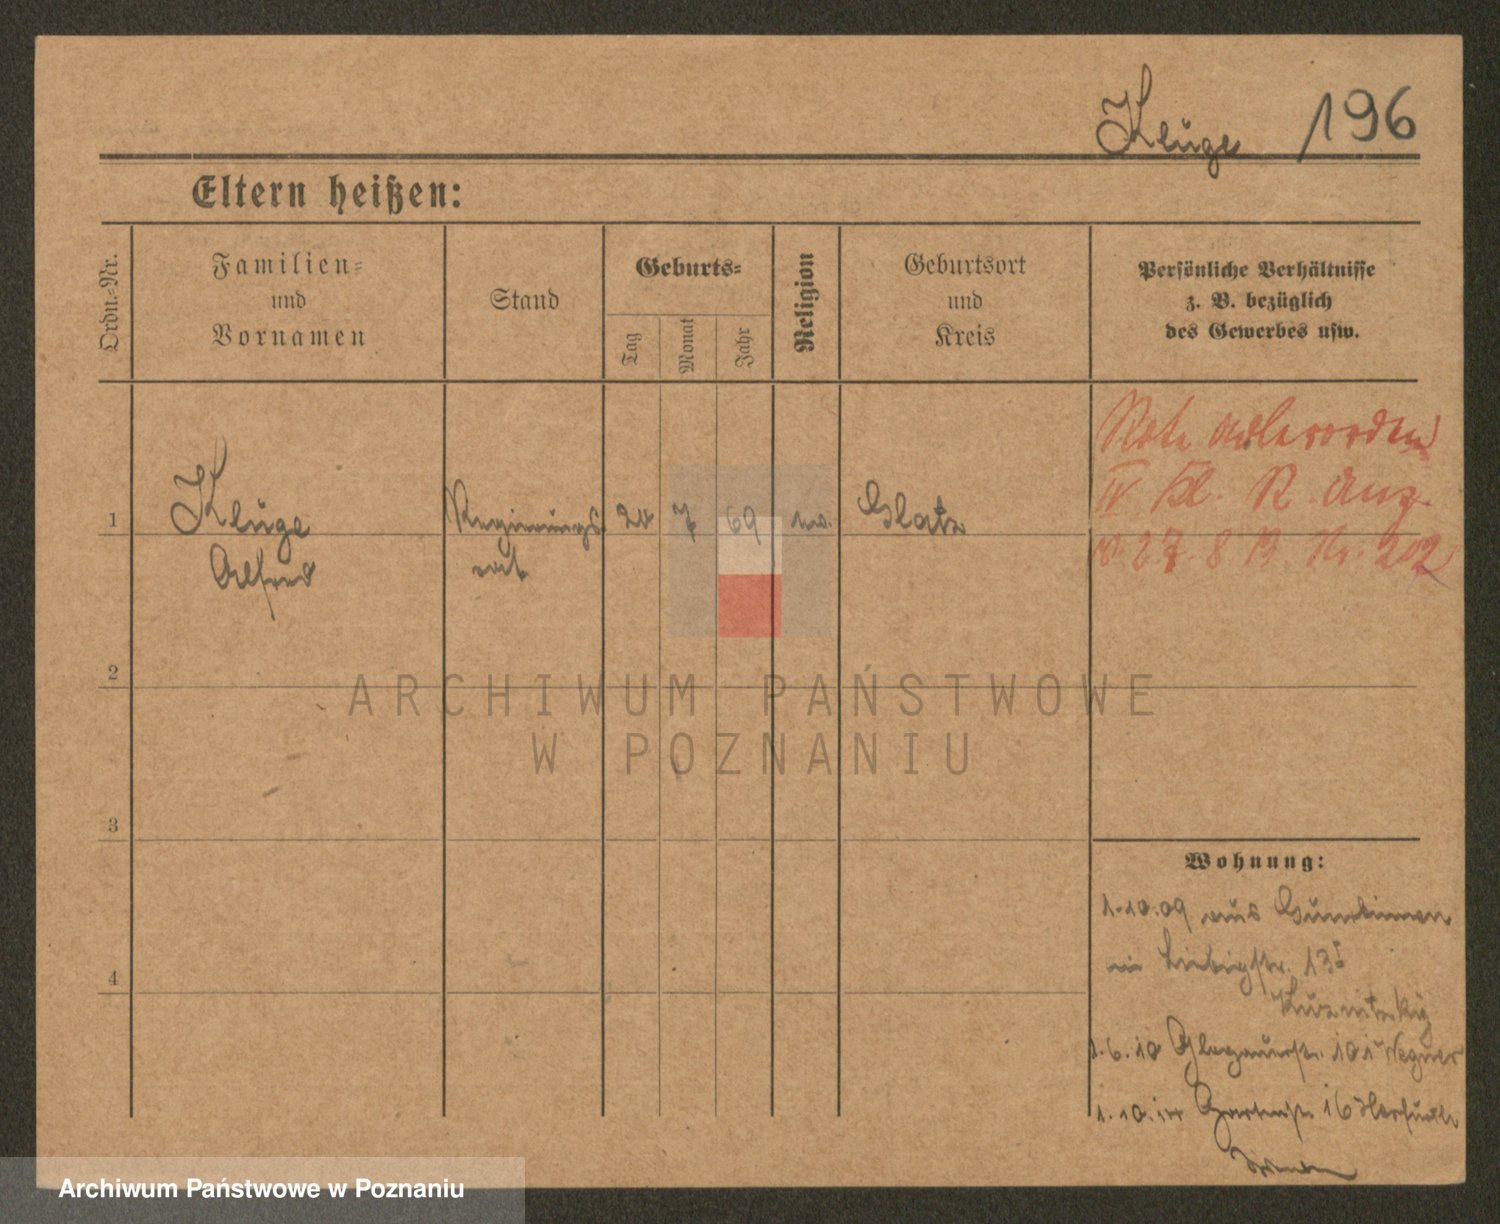 Kluge 196
Eltern heißen:
Ordn.-Nr.
Familien-
und
Vornamen
Stand
Geburts-
Tag
Monat
Jahr
Religion
Geburtsort
und
Kreis
Persönliche Verhältnisse
z. B. bezüglich
des Gewerbes usw.
1
Kluge
Alfred
Regierungs
rat
7
69
Glatz
Rote
IV Kl. R. Anz.
v. 27. 8. 13. Nr. 202
2
3
4
Wohnung:
1.10.09 aus Gumbinnen
Liebigstr. 13
1.6.10 Glogauerstr. 101 Wegner
1.10. Gartenstr. 16
ARCHIWUM PAŃSTWOWE
W POZNANIU
Archiwum Państwowe w Poznaniu